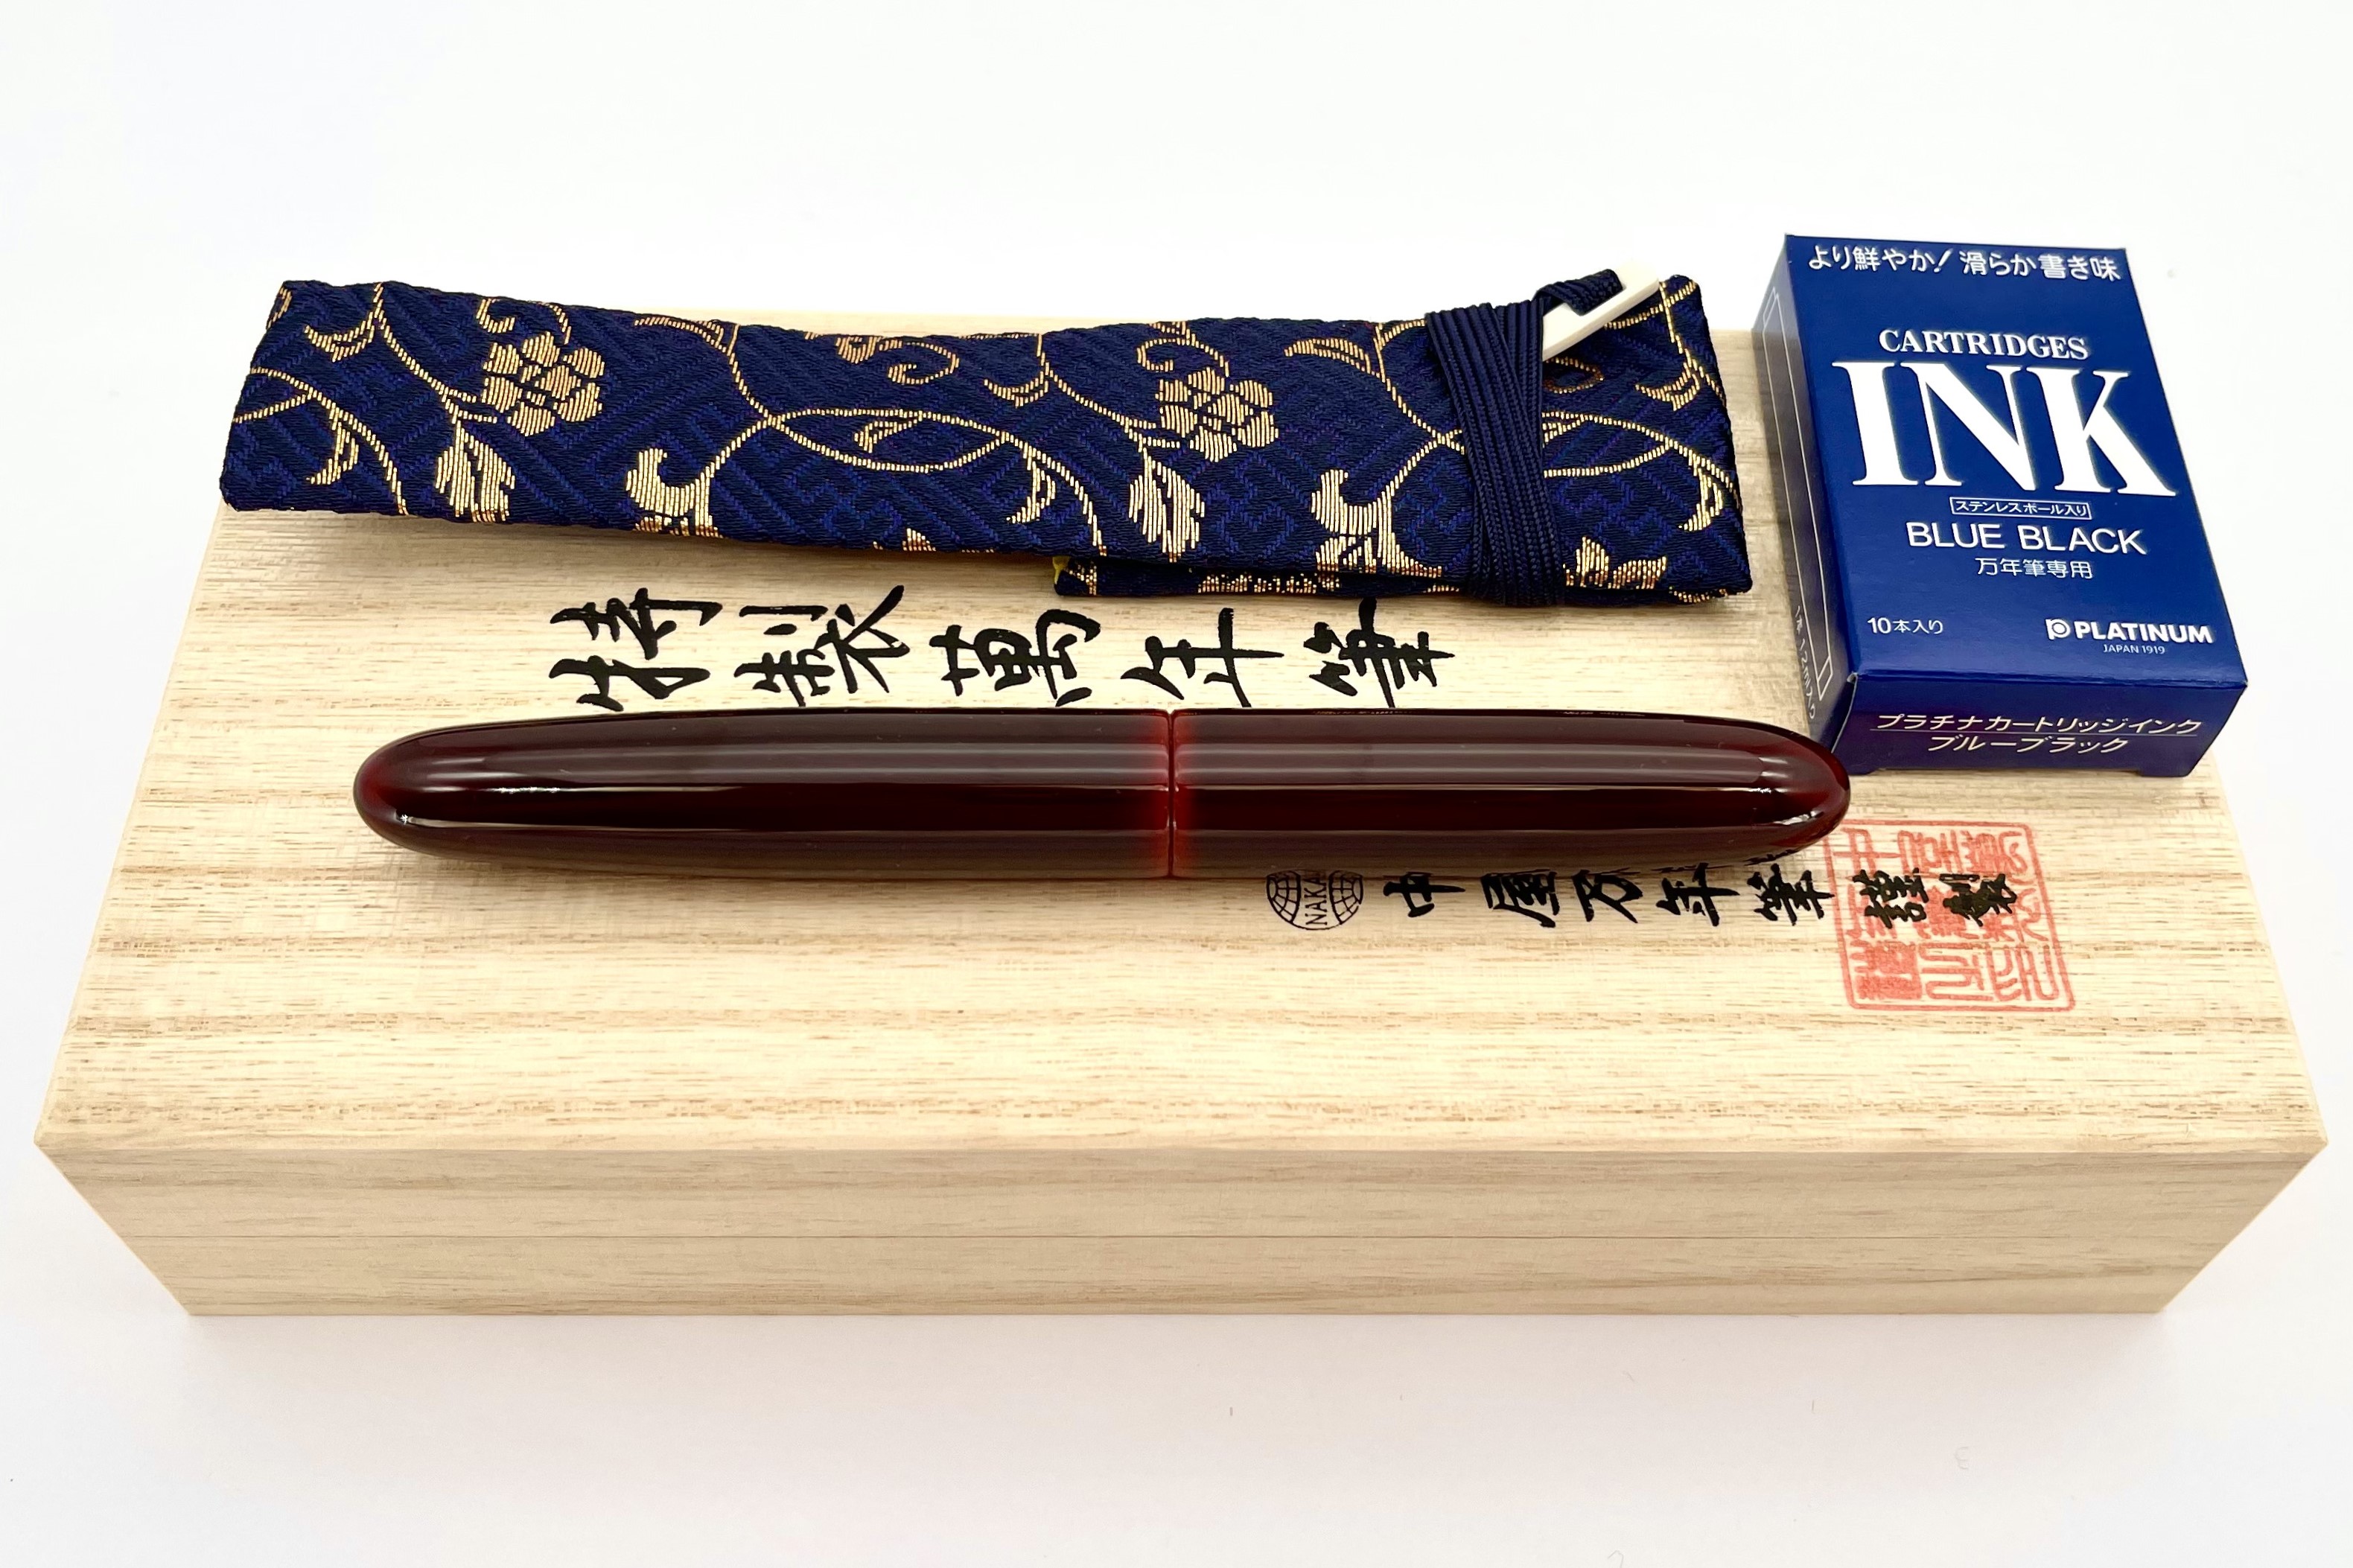 より鮮やか！滑らか書き味
CARTRIDGES
INK
ステンレスボール入り
BLUE BLACK
万年筆専用
10本入り
PLATINUM
JAPAN 1919
プラチナカートリッジインク
ブルーブラック
特製萬年筆
中屋万年筆謹製